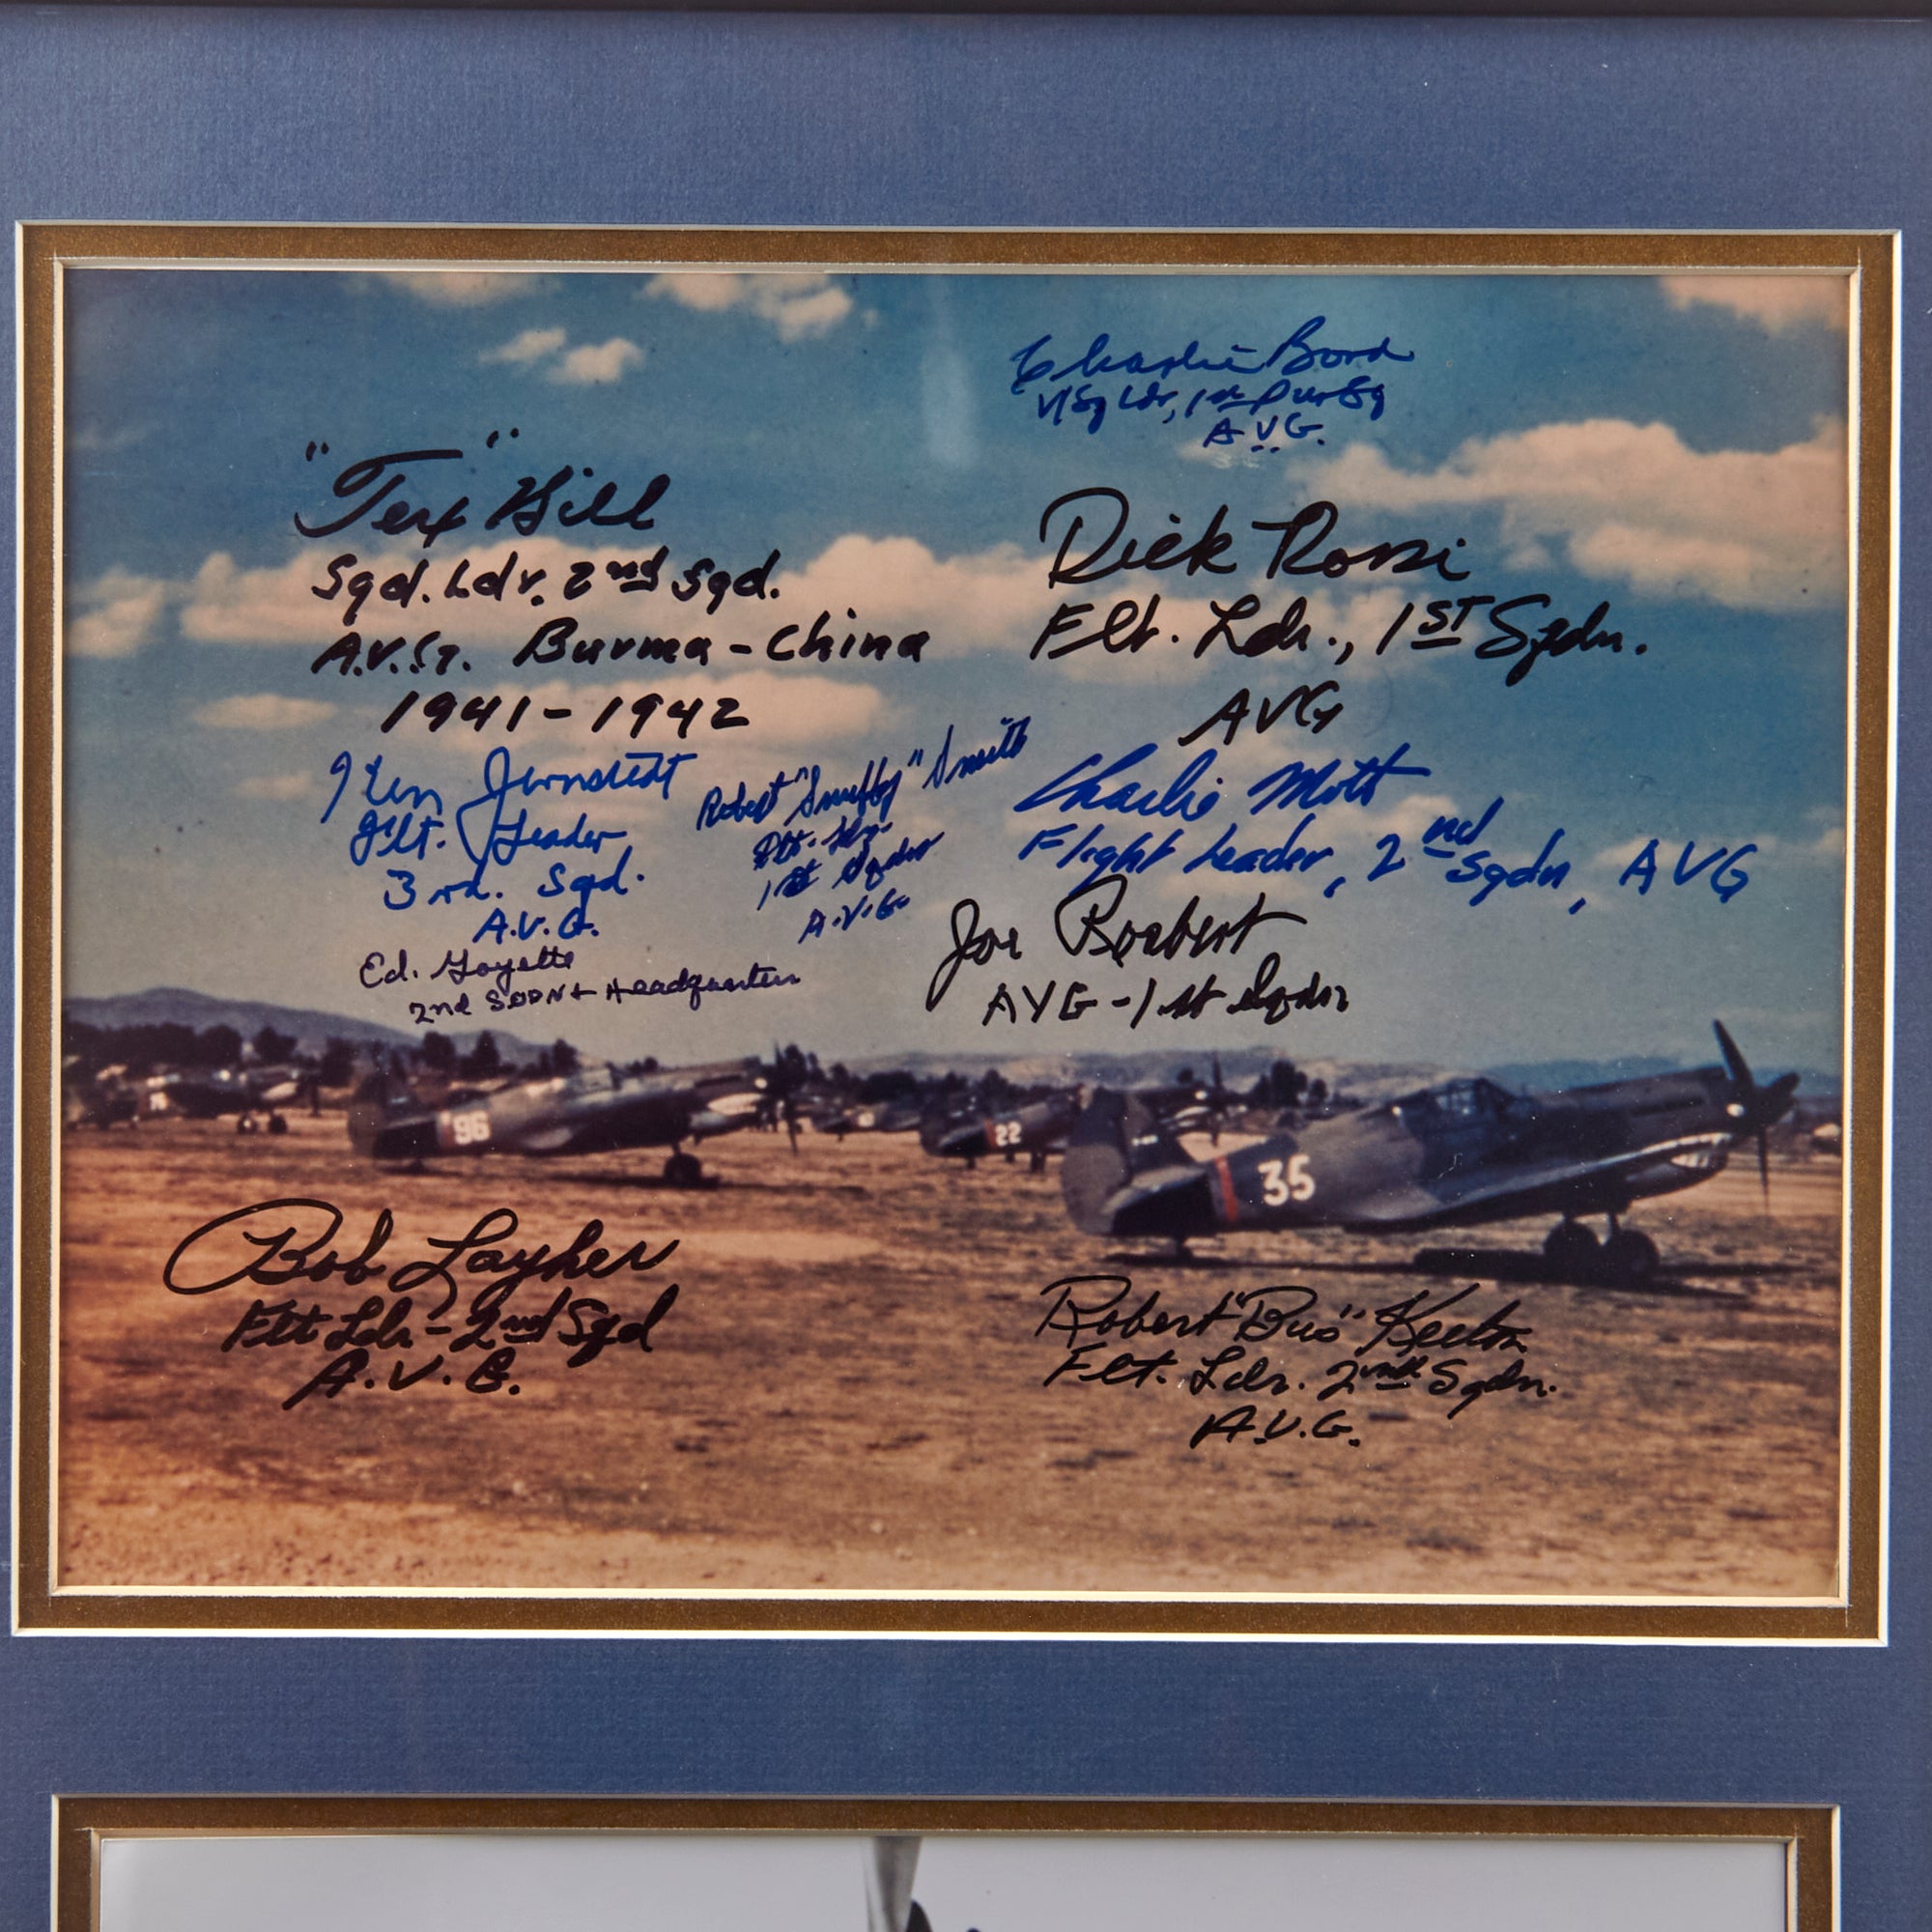 Charlie Bond
V/Sq Ldr, 1st Pur Sq
A.V.G.
"Tex" Hill
Sqd. Ldr. 2nd Sqd.
A.V.G. Burma - China
1941 - 1942
Dick Rossi
Flt. Ldr., 1ST Sqdn.
AVG
Ken Jernstedt
Flt. Leader
3rd. Sqd.
A.V.G.
Robert "Snuffy" Smith
Flt. Ldr.
1st Sqdn
A.V.G.
Charlie Mott
Flight Leader, 2nd Sqdn, AVG
Ed. Goyette
2nd SQDN + Headquarters
Joe Rosbert
AVG - 1st Sqdn
96
22
35
Bob Layher
Flt Ldr - 2nd Sqd
A.V.G.
Robert "Bus" Keeton
Flt. Ldr. 2nd Sqdn.
A.V.G.